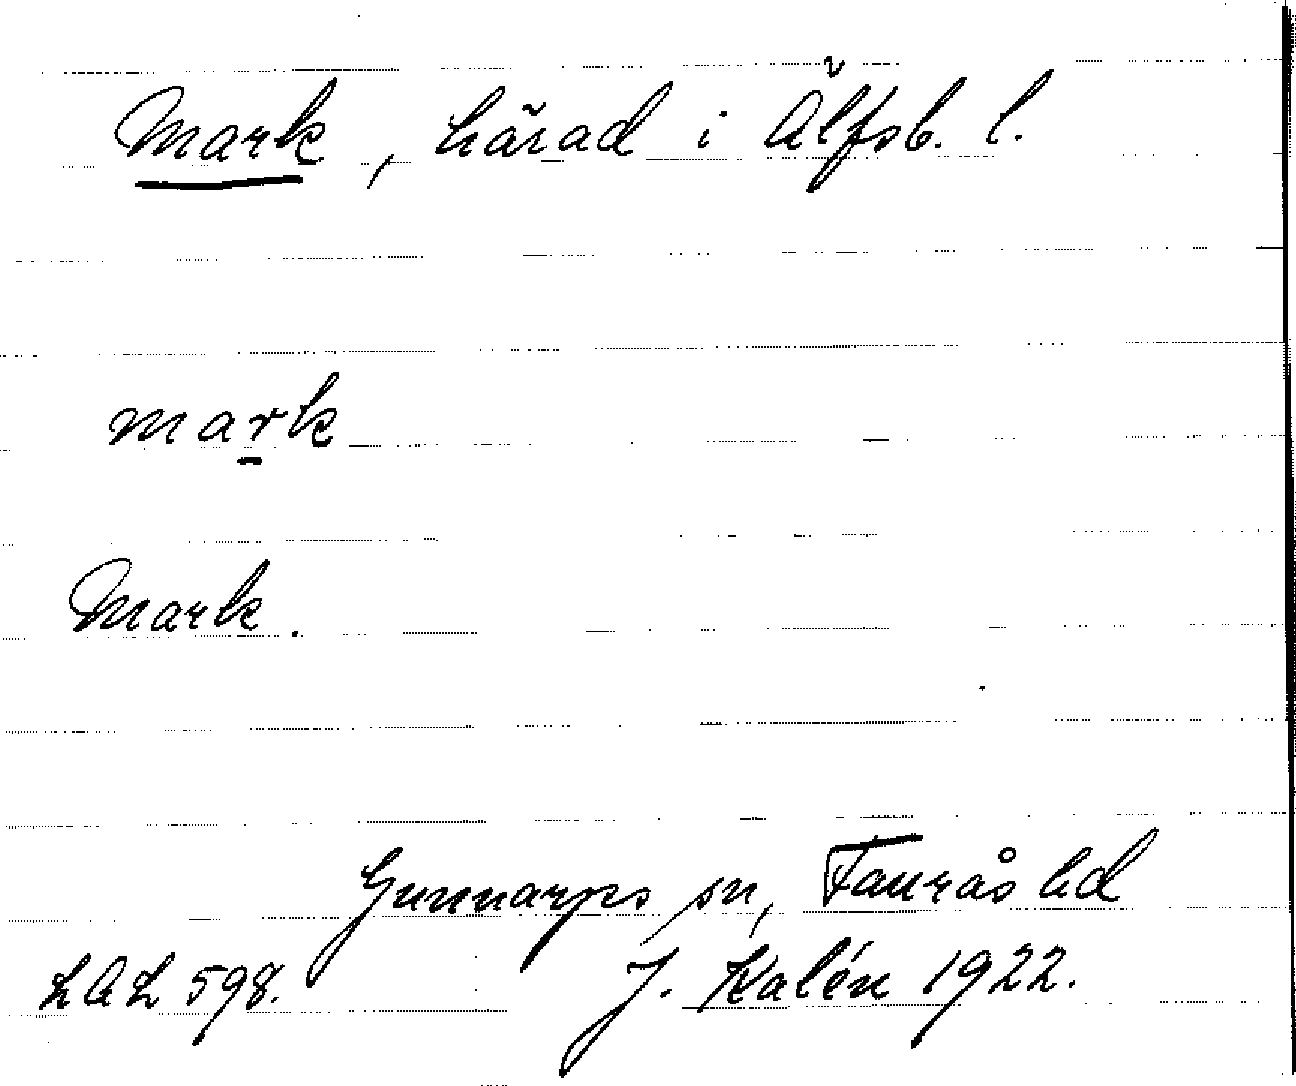 Mark, härad i Älfsb. l.
mark
Mark.
Gunnarps sn, Faurås hd
LAL 598. J. Kalén 1922.